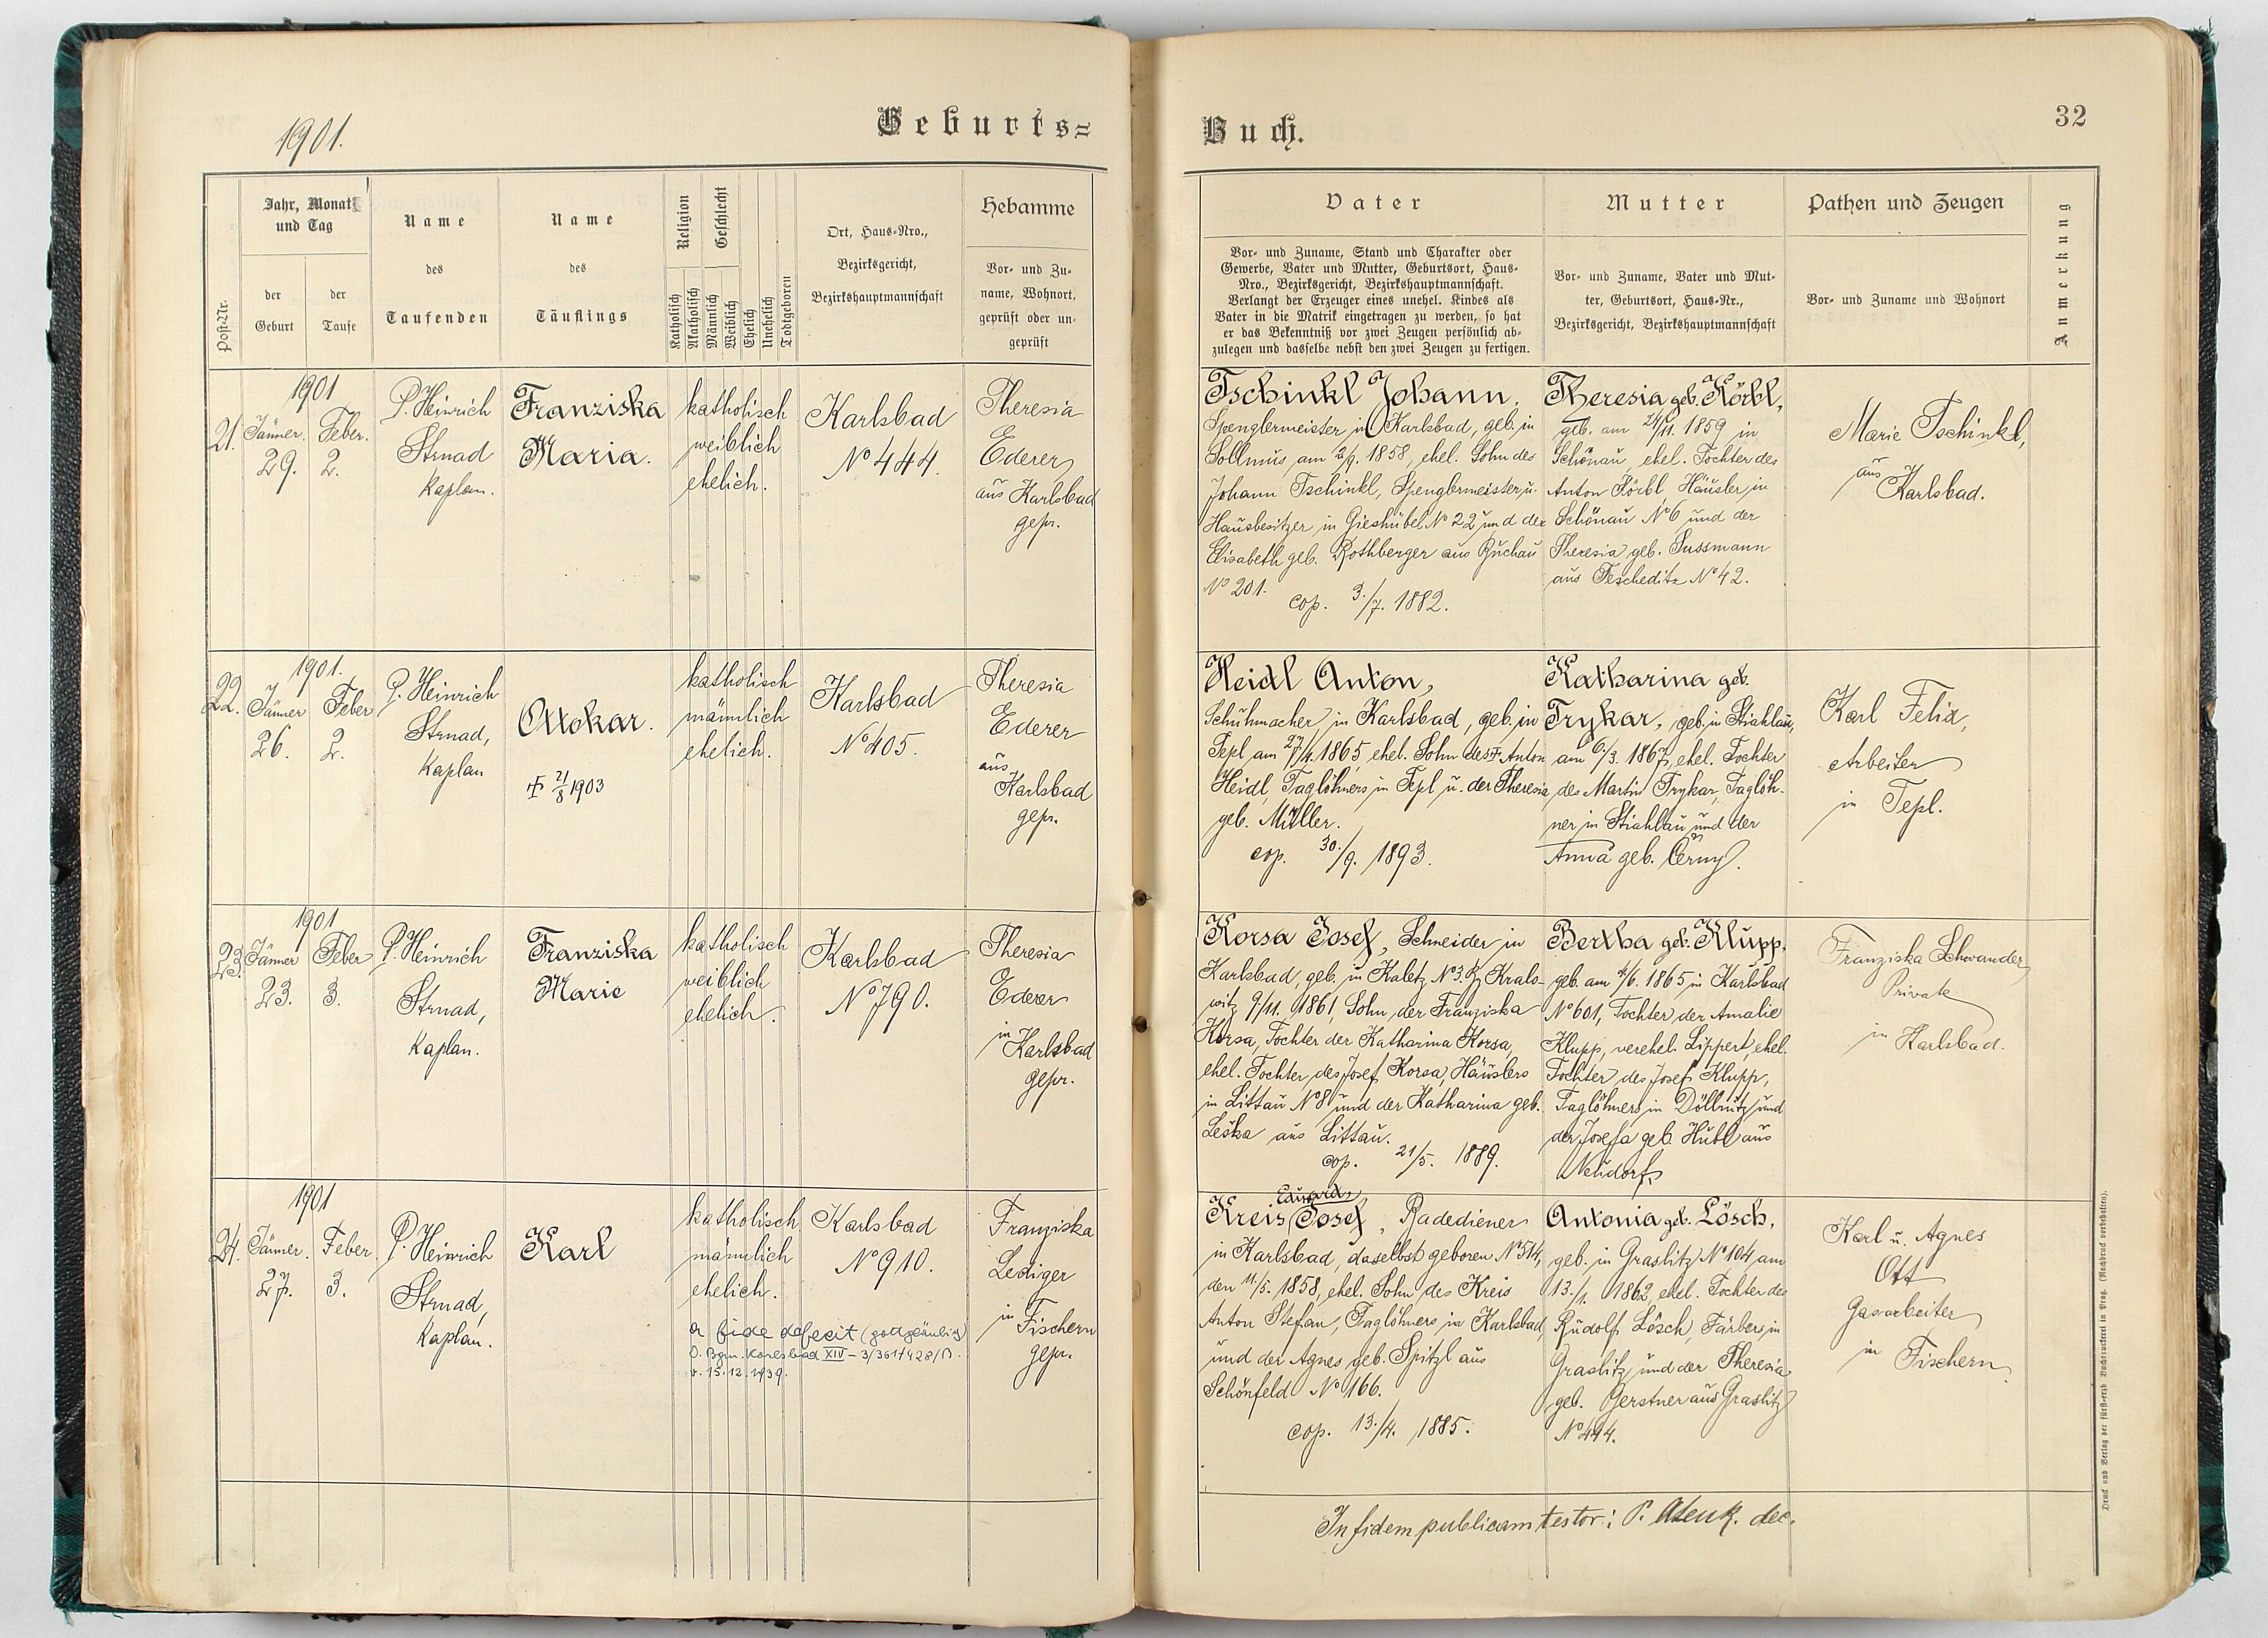 1901.
Geburts=
Post-Nr.
Jahr, Monat
und Tag
der
Geburt
der
Taufe
Name
des
Taufenden
Name
des
Täuflings
Religion
Geschlecht
Katholisch
Akatholisch
Männlich
Weiblich
Ehelich
Unehelich
Todtgeboren
Ort, Haus-Nro.,
Bezirksgericht,
Bezirkshauptmannschaft
Hebamme
Vor- und Zu-
name, Wohnort,
geprüft oder un-
geprüft
21.
1901
Jänner.
29.
Feber.
2.
P. Heinrich
Strnad
Kaplan.
Franziska
Maria.
katholisch
weiblich
ehelich.
Karlsbad
No 444.
Theresia
Ederer
aus Karlsbad
gepr.
22.
1901.
Jänner
26.
Feber
2.
P. Heinrich
Strnad,
Kaplan
Ottokar.
21/8 1903
katholisch
männlich
ehelich.
Karlsbad
No 405.
Theresia
Ederer
aus
Karlsbad
gepr.
23.
1901
Jänner
23.
Feber
3.
P. Heinrich
Strnad,
Kaplan.
Franziska
Marie
katholisch
weiblich
ehelich.
Karlsbad
No 790.
Theresia
Ederer
in
Karlsbad
gepr.
24.
1901
Jänner.
27.
Feber.
3.
P. Heinrich
Strnad,
Kaplan.
Karl
katholisch
männlich
ehelich.
a fide defecit (gottgläubig)
O. Bgm. Karlsbad XIV – 3/361/428/B.
v. 15.12.1939.
Karlsbad
No 910.
Franziska
Lediger
in Fischern
gepr.
Buch.
32
Vater
Vor- und Zuname, Stand und Charakter oder
Gewerbe, Vater und Mutter, Geburtsort, Haus-
Nro., Bezirksgericht, Bezirkshauptmannschaft.
Verlangt der Erzeuger eines unehel. Kindes als
Vater in die Matrik eingetragen zu werden, so hat
er das Bekenntniß vor zwei Zeugen persönlich ab-
zulegen und dasselbe nebst den zwei Zeugen zu fertigen.
Mutter
Vor- und Zuname, Vater und Mut-
ter, Geburtsort, Haus-Nr.,
Bezirksgericht, Bezirkshauptmannschaft
Pathen und Zeugen
Vor- und Zuname und Wohnort
Anmerkung
Tschinkl Johann,
Spenglermeister in Karlsbad, geb. in
Sollmus am 2/9. 1858, ehel. Sohn des
Johann Tschinkl, Spenglermeister u.
Hausbesitzer in Gieshübel No 22 und der
Elisabeth geb. Rothberger aus Buchau
No 201.
cop. 3./7. 1882.
Theresia geb. Körbl,
geb. am 24/11. 1859 in
Schönau, ehel. Tochter des
Anton Körbl, Häusler in
Schönau No 6 und der
Theresia geb. Sussmann
aus Tescheditz No 42.
Marie Tschinkl,
aus
Karlsbad.
Heidl Anton,
Schuhmacher in Karlsbad, geb. in
Tepl am 27/4. 1865, ehel. Sohn des Anton
Heidl, Taglöhners in Tepl u. der Theresia
geb. Müller.
cop. 30./9. 1893.
Katharina geb.
Trykar, geb. in Stiahlau,
am 6/3. 1867, ehel. Tochter
des Martin Trykar, Taglöh-
ner in Stiahlau und der
Anna geb. Černy.
Karl Felix,
Arbeiter
in Tepl.
Korsa Josef, Schneider in
Karlsbad, geb. in Kaletz No 3. Bz. Kralo-
witz 9/11. 1861, Sohn der Franziska
Korsa, Tochter der Katharina Korsa,
ehel. Tochter des Josef Korsa, Häuslers
in Littau No 8 und der Katharina geb.
Leška aus Littau.
cop. 21/5. 1889.
Bertha geb. Klupp,
geb. am 4/6. 1865 in Karlsbad
No 601, Tochter der Amalie
Klupp, verehel. Lippert, ehel.
Tochter des Josef Klupp,
Taglöhners in Döllnitz und
der Josefa geb. Hübl aus
Neudorf
Franziska Schwander,
Private
in Karlsbad.
Eduard
Kreis Josef, Badediener
in Karlsbad, daselbst geboren No 514,
den 11./5. 1858, ehel. Sohn des Kreis
Anton Stefan, Taglöhners in Karlsbad
und der Agnes geb. Spitzl aus
Schönfeld No 166.
cop. 13./4. 1885.
Antonia geb. Lösch,
geb. in Graslitz No 104 am
13./1. 1862, ehel. Tochter des
Rudolf Lösch, Färbers in
Graslitz und der Theresia
geb. Gerstner aus Graslitz
No 494.
Karl u. Agnes
Ott
Gasarbeiter
in Fischern
In fidem publicam testor: P. dec.
Druck und Verlag der fürst-erzb. Buchdruckerei in Prag. (Nachdruck vorbehalten).